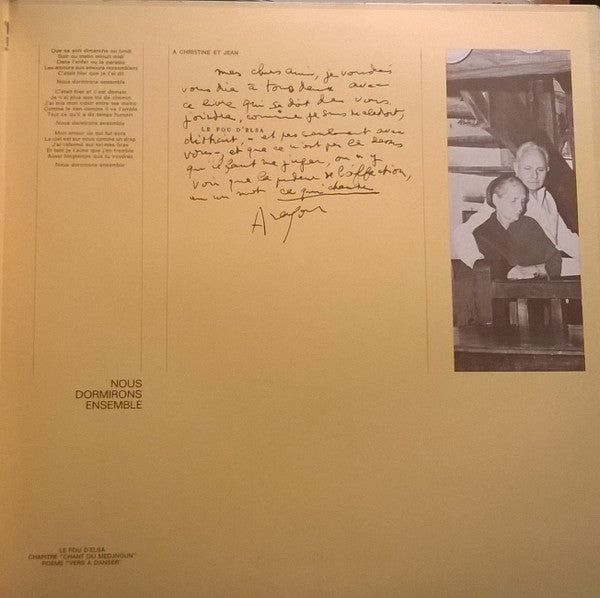 Que ce soit dimanche ou lundi
Soir ou matin minuit midi
Dans l'enfer ou le paradis
Les amours aux amours ressemblent
C'était hier que je t'ai dit
Nous dormirons ensemble
C'était hier et c'est demain
Je n'ai plus que toi de chemin
J'ai mis mon cœur entre tes mains
Comme le tien comme il va l'amble
Tout ce qu'il a de temps humain
Nous dormirons ensemble
Mon amour ce qui fut sera
Le ciel est sur nous comme un drap
J'ai refermé sur toi mes bras
Et tant je t'aime que j'en tremble
Aussi longtemps que tu voudras
Nous dormirons ensemble
A CHRISTINE ET JEAN
mes chers amis, je voudrais
vous dire à tous deux avec
ce livre qui se doit de vous
joindre, comme je suis maladroit,
LE FOU D'ELSA
- et pas seulement avec
vous - et que ce n'est pas là dessus
qu'il faut me juger, on n'y
voit que la pudeur de l'affection,
en un mot ce qui chante
Aragon
NOUS
DORMIRONS
ENSEMBLE
LE FOU D'ELSA
CHAPITRE "CHANT DU MEDJNOUN"
POEME "VERS A DANSER"